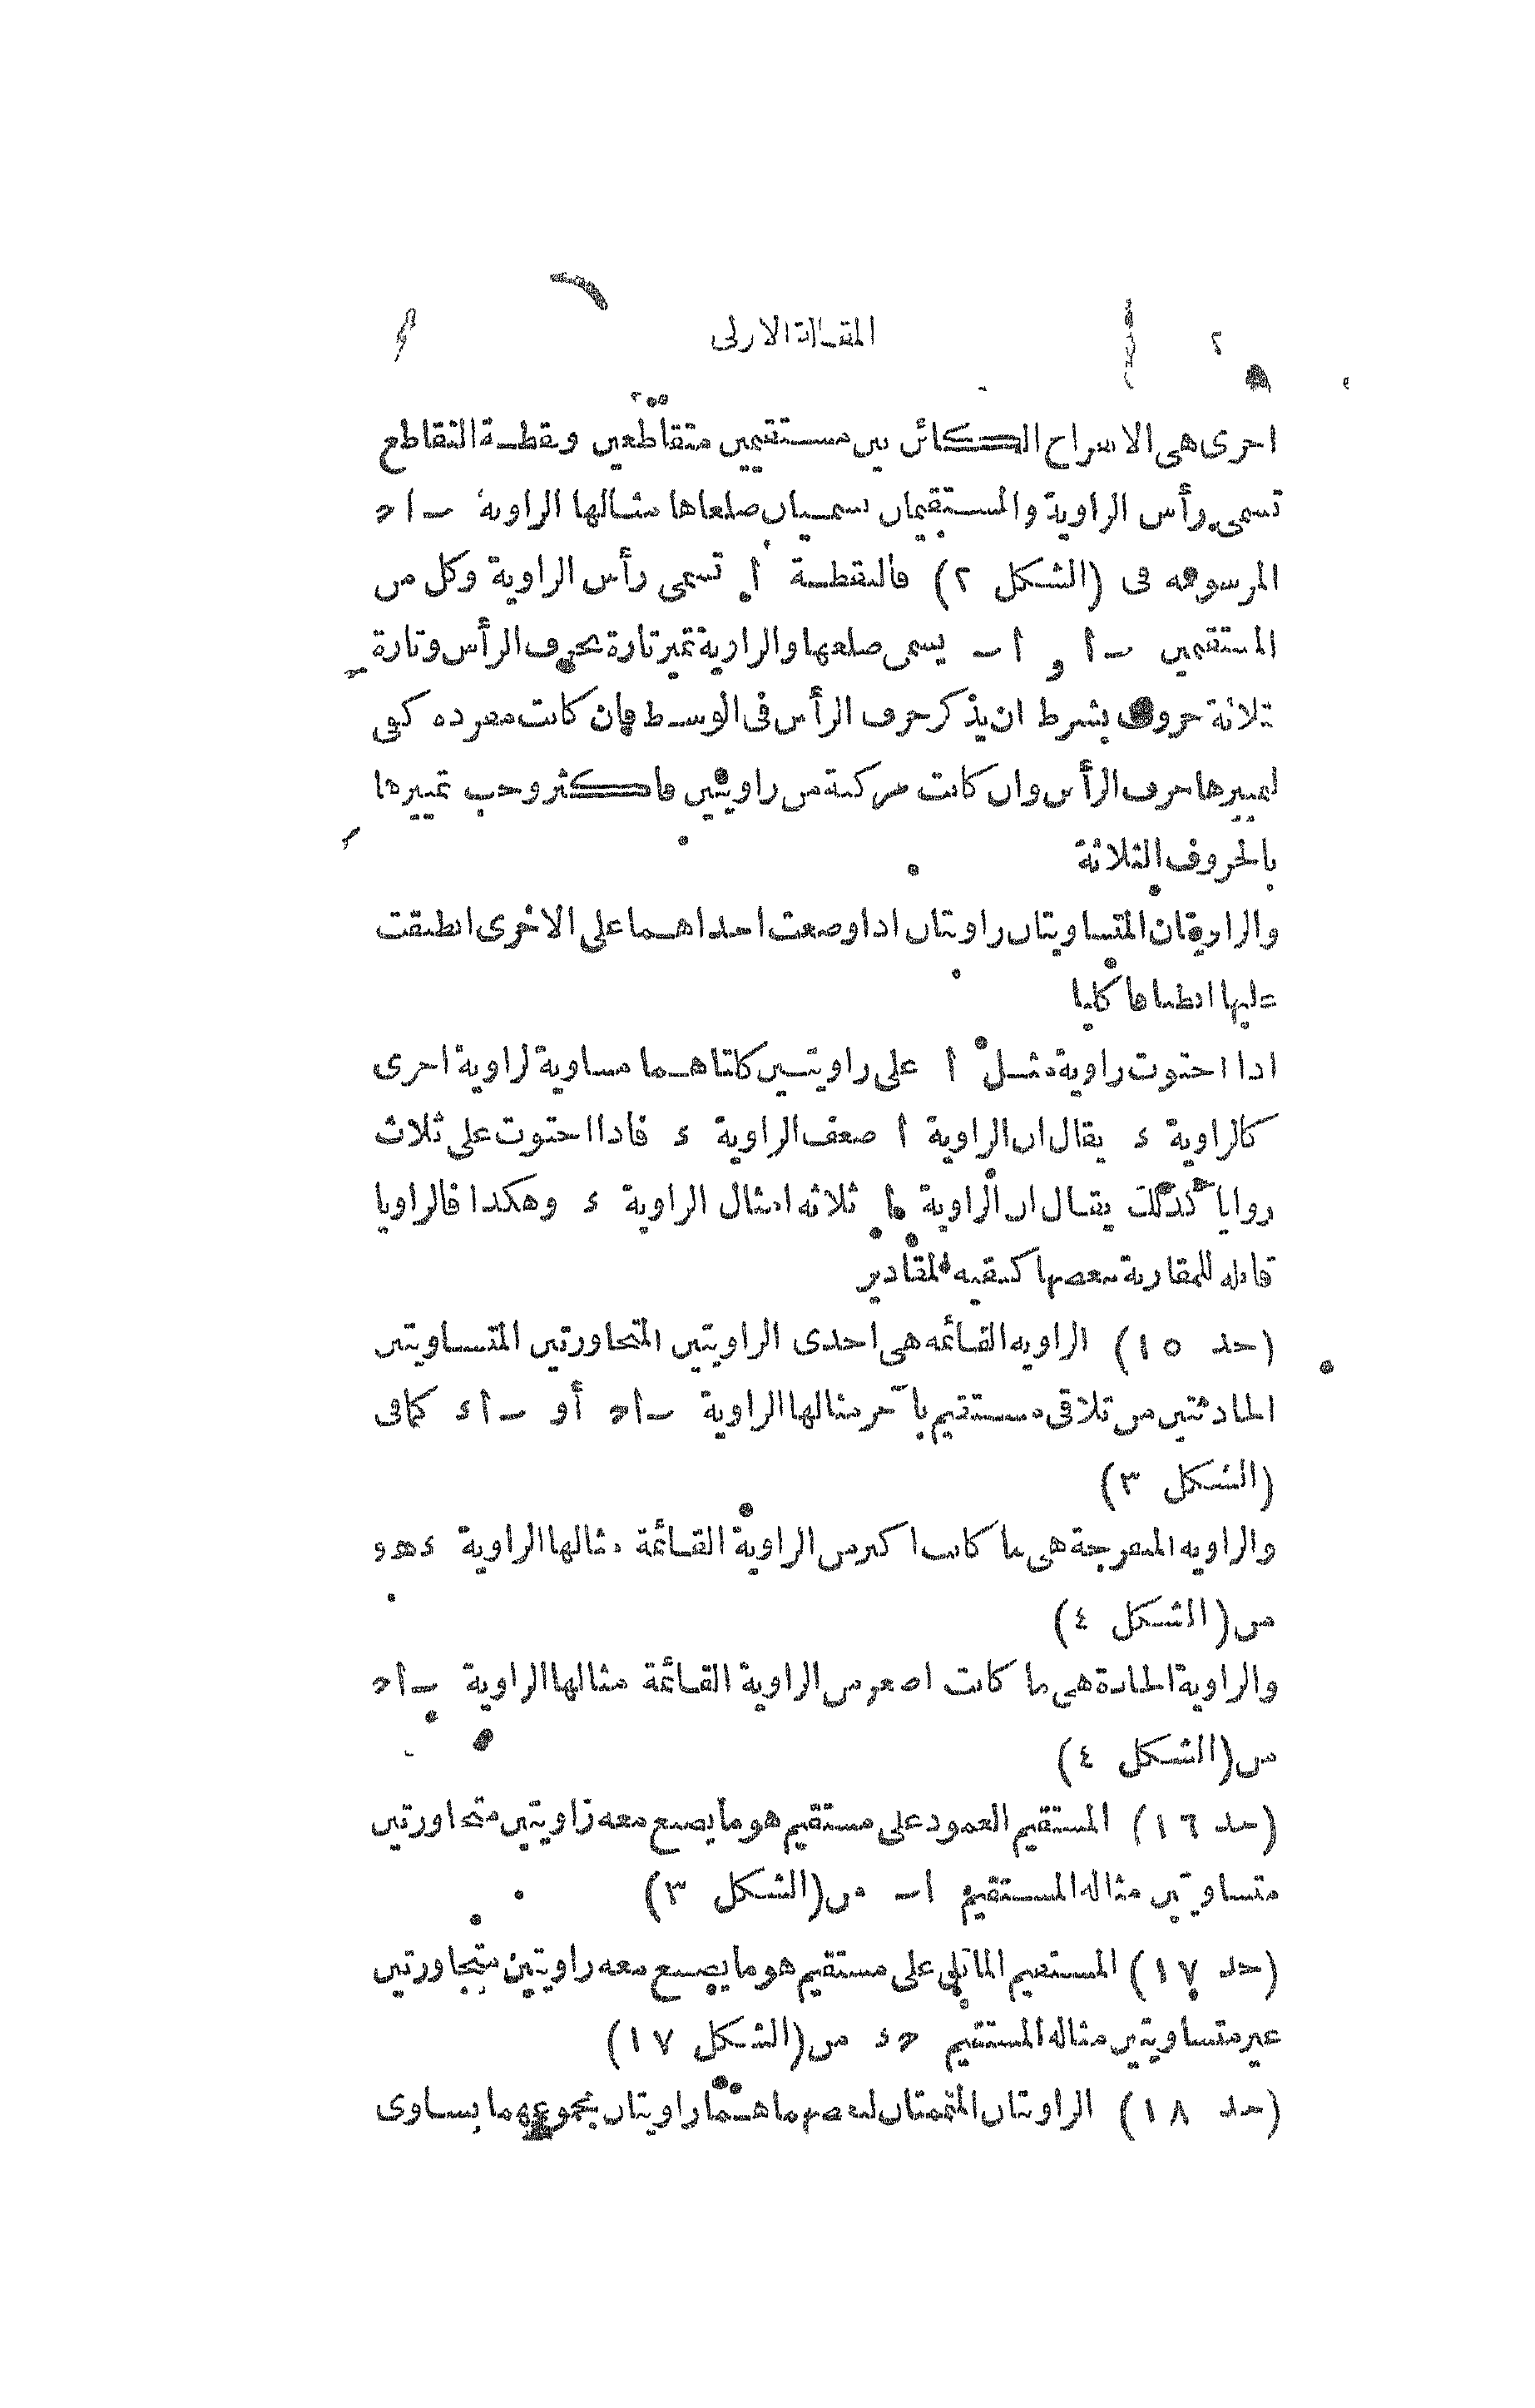 ٢ المقالة الاولى
اخرى هى الانفراج الكائن بين مستقيمين متقاطعين ونقطة التقاطع
تسمى رأس الزاوية والمستقيمان يسميان ضلعاها مثالها الزاوية ـا ح
المرسومة فى (الشكل ٢) فالنقطة أ تسمى رأس الزاوية وكل من
المستقيمين ـأ و أـ يسمى ضلعها والزاوية تميز تارة بحرف الرأس وتارة
بثلاثة حروف بشرط ان يذكر حرف الرأس فى الوسط فان كانت مفردة كفى
لتمييزها حرف الرأس وان كانت مركبة من زاويتين فاكثر وجب تمييزها
بالحروف الثلاثة
والزاويتان المتساويتان زاويتان اذا وضعت احداهما على الاخرى انطبقت
عليها انطباقا كليا
اذا احتوت زاوية مثل أ على زاويتين كلتاهما مساوية لزاوية اخرى
كالزاوية ء يقال ان الزاوية أ ضعف الزاوية ء فاذا احتوت على ثلاث
زوايا كذلك يقال ان الزاوية أ ثلاثة امثال الزاوية ء وهكذا فالزوايا
قابلة للمقارنة ببعضها كبقية المقادير
(حد ١٥) الزاوية القائمة هى احدى الزاويتين المتجاورتين المتساويتين
الحادثتين من تلاقى مستقيم بآخر مثالها الزاوية ـأح أو ـأء كما فى
(الشكل ٣)
والزاوية المنفرجة هى ما كانت اكبر من الزاوية القائمة مثالها الزاوية ءهو
من (الشكل ٤)
والزاوية الحادة هى ما كانت اصغر من الزاوية القائمة مثالها الزاوية ـأح
من (الشكل ٤)
(حد ١٦) المستقيم العمود على مستقيم هو ما يصنع معه زاويتين متجاورتين
متساويتين مثاله المستقيم اـ من (الشكل ٣)
(حد ١٧) المستقيم المائل على مستقيم هو ما يصنع معه زاويتين متجاورتين
غير متساويتين مثاله المستقيم حء من (الشكل ١٧)
(حد ١٨) الزاويتان المتممتان لبعضهما هما زاويتان مجموعهما يساوى